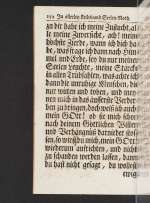 150 In allerley Leibs und Seelen-Noth.
zu dir habe ich meine Zuflucht, al-
le meine Zuversicht, ach! meine
höchste Zierde, wann ich dich ha-
be, was frage ich dann nach Him-
mel und Erde, sey du nur meiner
Seelen Leuchte, meine Stärcke
in allen Trübsalen, was achte ich
dann die unruhige Menschen, die
nur wüten und toben, und mei-
nen mich in das äusserste Verder-
ben zu bringen, doch weiß ich auch
mein GOtt! ob sie mich schon
nach deinem Göttlichen Willen
und Verhängnüs darnieder stos-
sen, so wirst du mich, mein GOtt,
wiederum aufrichten, und nicht
zu schanden werden lassen, dann
du hast nicht gesagt, du wollest
ewig-